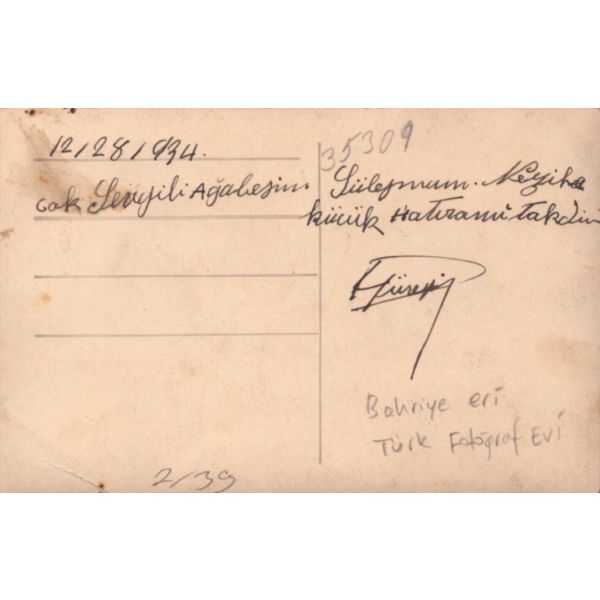 12/28/934.
35309
Çok Sevgili Ağabeyim Süleyman.
küçük Hatıramı takdim
Bahriye eri
Türk Fotoğraf Evi
2/39